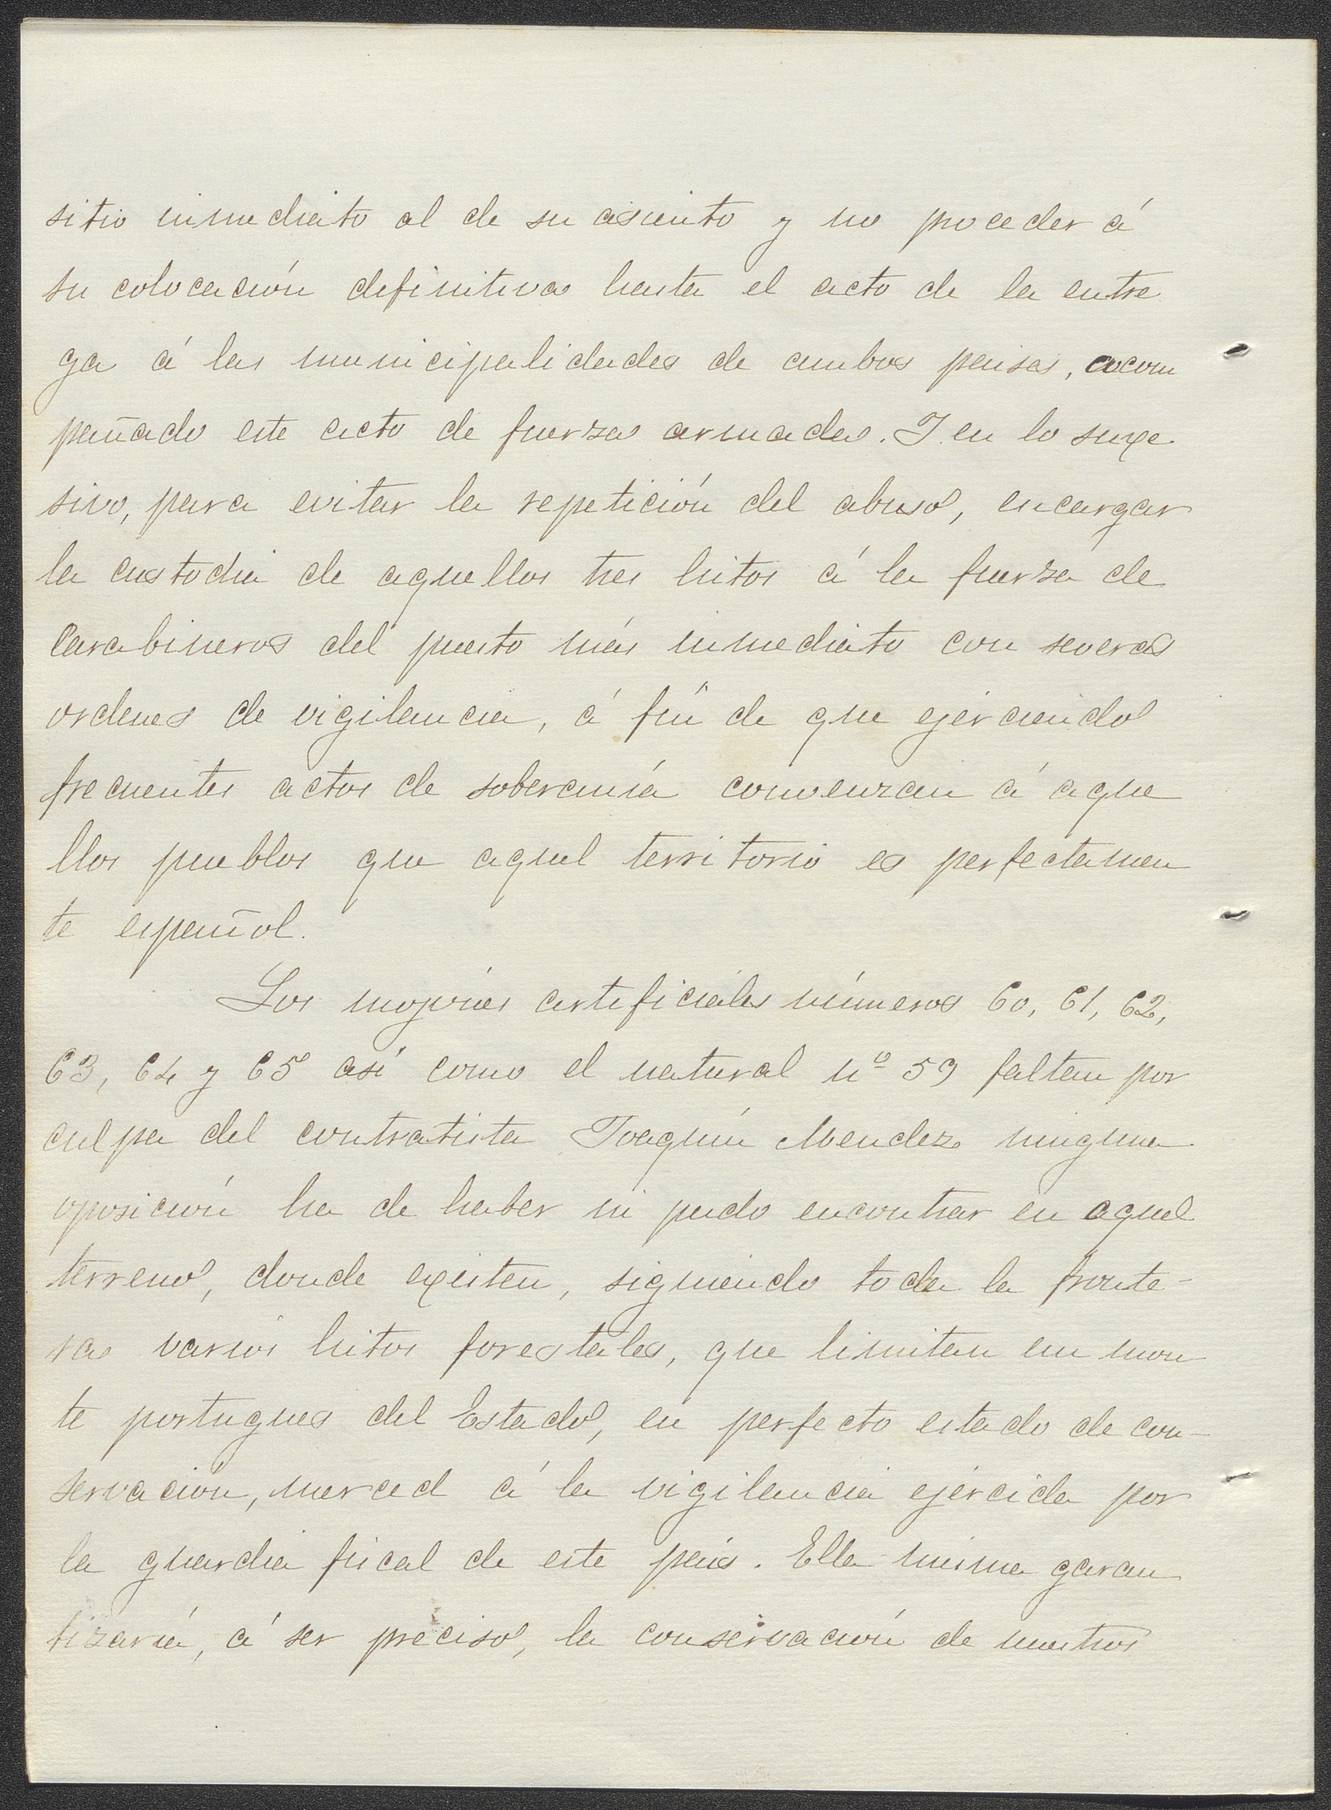 sitio inmediato al de su asiento y no proceder á
su colocación definitiva hasta el acto de la entre
ga á las municipalidades de ambos paises, acom
pañado este acto de fuerzas armadas. Y en lo suce
sivo, para evitar la repetición del abuso, encargar
la custodia de aquellos tres hitos á la fuerza de
Carabineros del puesto más inmediato con severas
ordenes de vigilancia, á fin de que ejerciendo
frecuentes actos de soberanía convenzan á aque
llos pueblos que aquel territorio es perfectamen
te español.
Los mojones artificiales números 60, 61, 62,
63, 64 y 65 así como el natural nº 59 faltan por
culpa del contratista Joaquín Mendez ninguna
oposición ha de haber ni pudo encontrar en aquel
terreno, donde existen, siguiendo toda la fronte-
ra varios hitos forestales, que limitan un mon
te portugues del Estado, en perfecto estado de con-
servación, merced á la vigilancia ejercida por
la guardia fiscal de este país. Ella misma garan
tizaría, á ser preciso, la conservación de nuestros